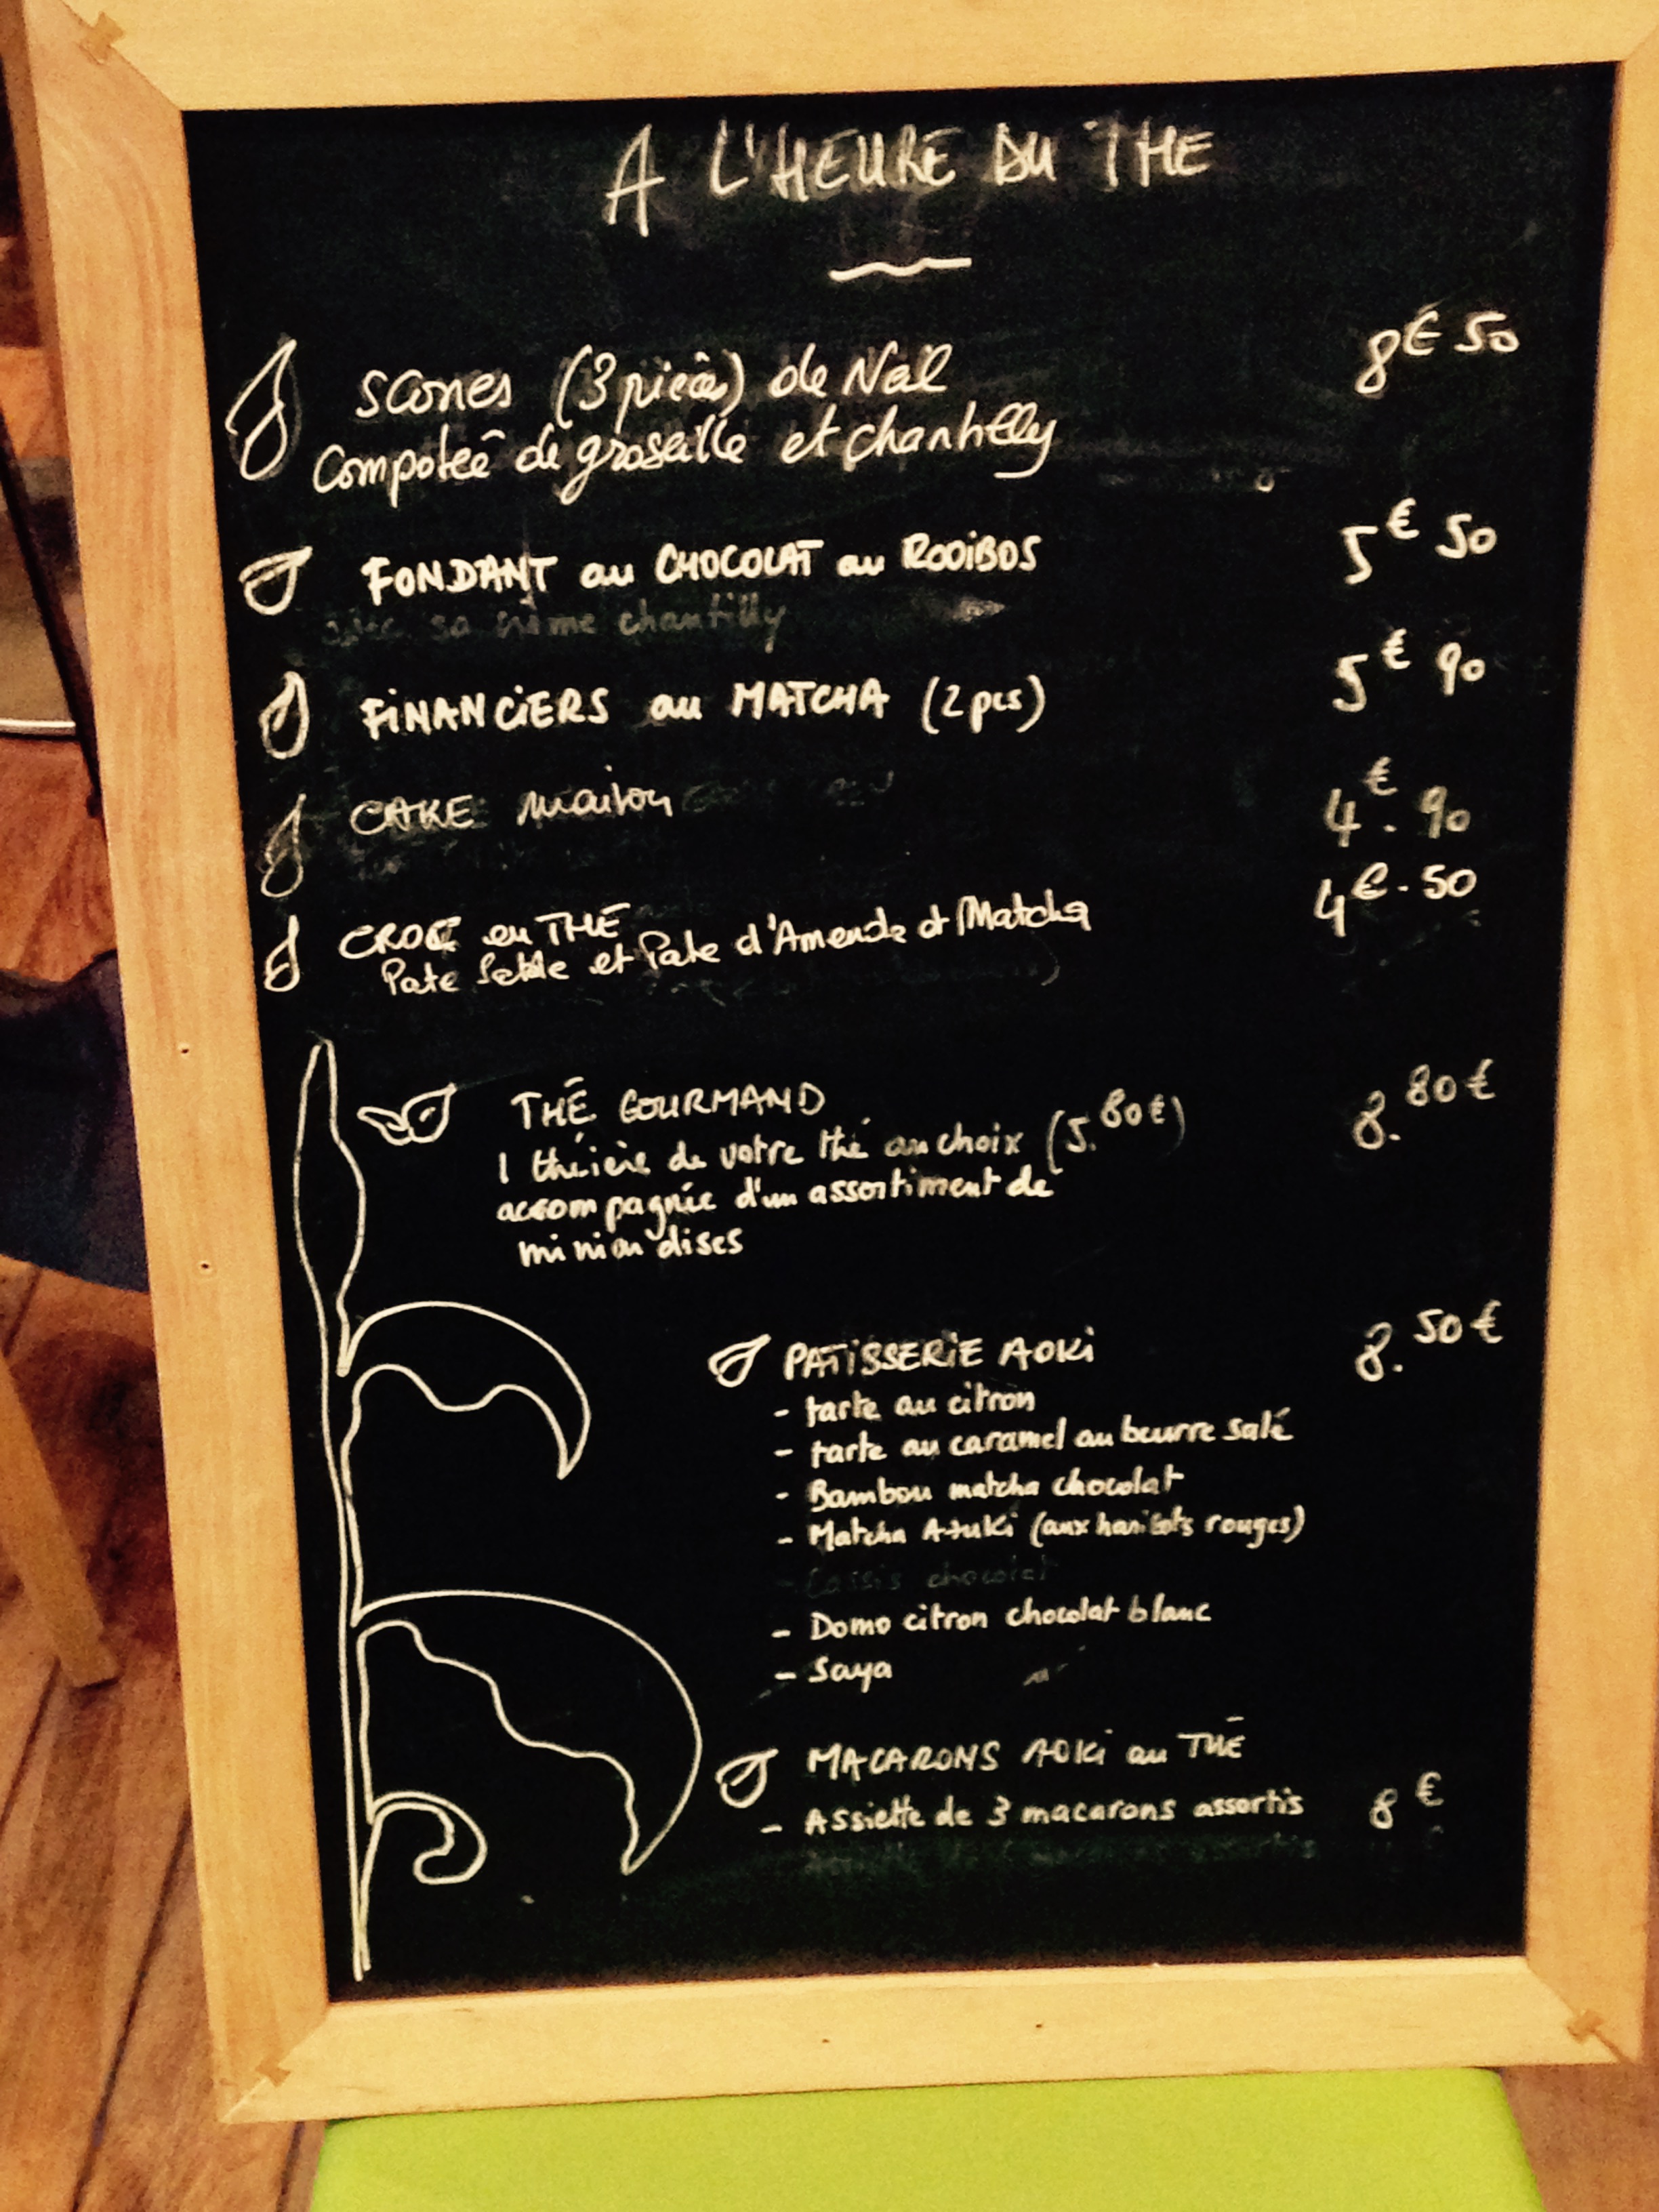 A L'HEURE DU THE
SCONES (3 pièces) de Nal 8€50
Compoteê de groseille et chantilly
FONDANT au CHOCOLAT au ROOiBOS 5€50
avec sa crème chantilly
FiNANCiERS au MATCHA (2pcs) 5€90
CAKE maison 4€.90
CROC en THE 4€.50
Pate Sable et Pate d'Amende et Matcha
THÉ GOURMAND 8.80€
1 théière de votre thé au choix (5.80€)
accompagnée d'un assortiment de
mignardises
PATiSSERiE AOKi 8.50€
- tarte au citron
- tarte au caramel au beurre salé
- Bambou matcha chocolat
- Matcha Azuki (aux haricots rouges)
- Cassis chocolat
- Domo citron chocolat blanc
- Saya
MACARONS AOKi au THÉ
- Assiette de 3 macarons assortis 8€